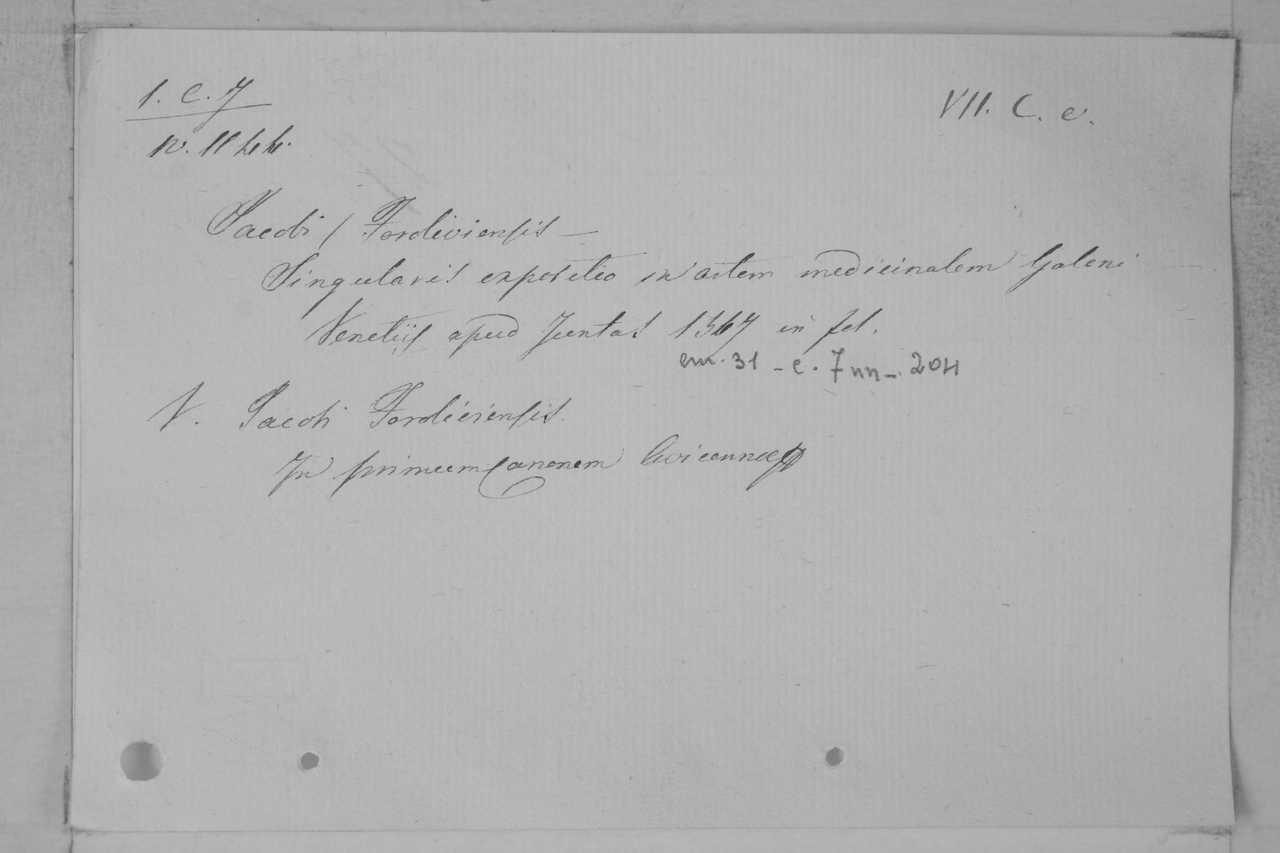 1. C. 7
VII. C. e.
N. 1144.
Jacobi / Foroliviensis —
Singularis expositio in artem medicinalem Galeni
Venetiis apud Juntas 1547 in fol.
cm. 31 - c. 7 nn -. 204
V. Jacobi Foroliviensis.
In primum Canonem Avicennae